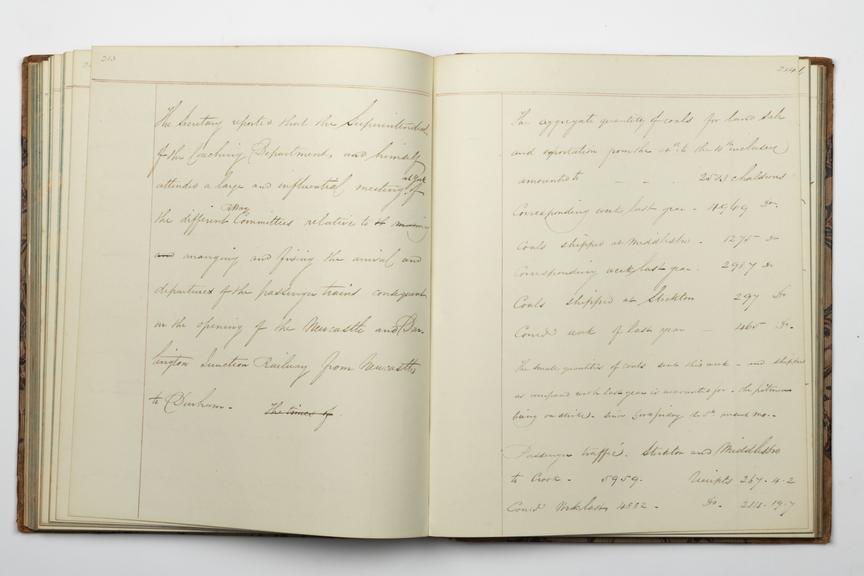 213
The Secretary reported that the Superintendent
of the Coaching Department and himself
at York
attended a large and influential meeting of
Railway
the different Committees relative to
and arranging and fixing the arrival and
departures of the passenger trains consequent
on the opening of the Newcastle and Dar-
lington Junction Railway from Newcastle
to Durham. The times of
214
The aggregate quantity of coals for land sale
and exportation from the to the inclusive
amounted to chaldrons
Corresponding week last year - 4969 Do.
Coals shipped at Middlesbro - 1275 Do
Corresponding week last year 2987 Do
Coals shipped at Stockton 297 Do
Correspd. week of last year 465 Do.
The small quantities of coals sent this week - and shipped
as compared with last year is accounted for - the pitmen
being on strike - since the 5th
Passenger traffic. Stockton and Middlesbro
to Crook - 5959. Receipts 267. 4. 2
Do. 19. 7